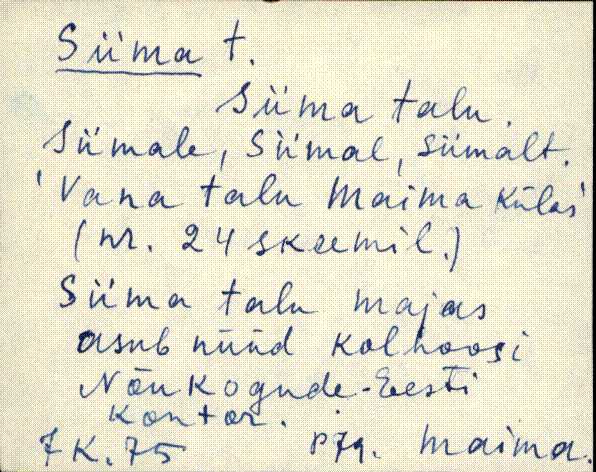 Siima t.
Siima talu.
Siimale, Siimal, Siimalt.
'Vana talu Maima külas'
(nr. 24 skeemil.)
Siima talu majas
asub nüüd kolhoosi
Nõukogude-Eesti
kontor.
7K.75 Maima.